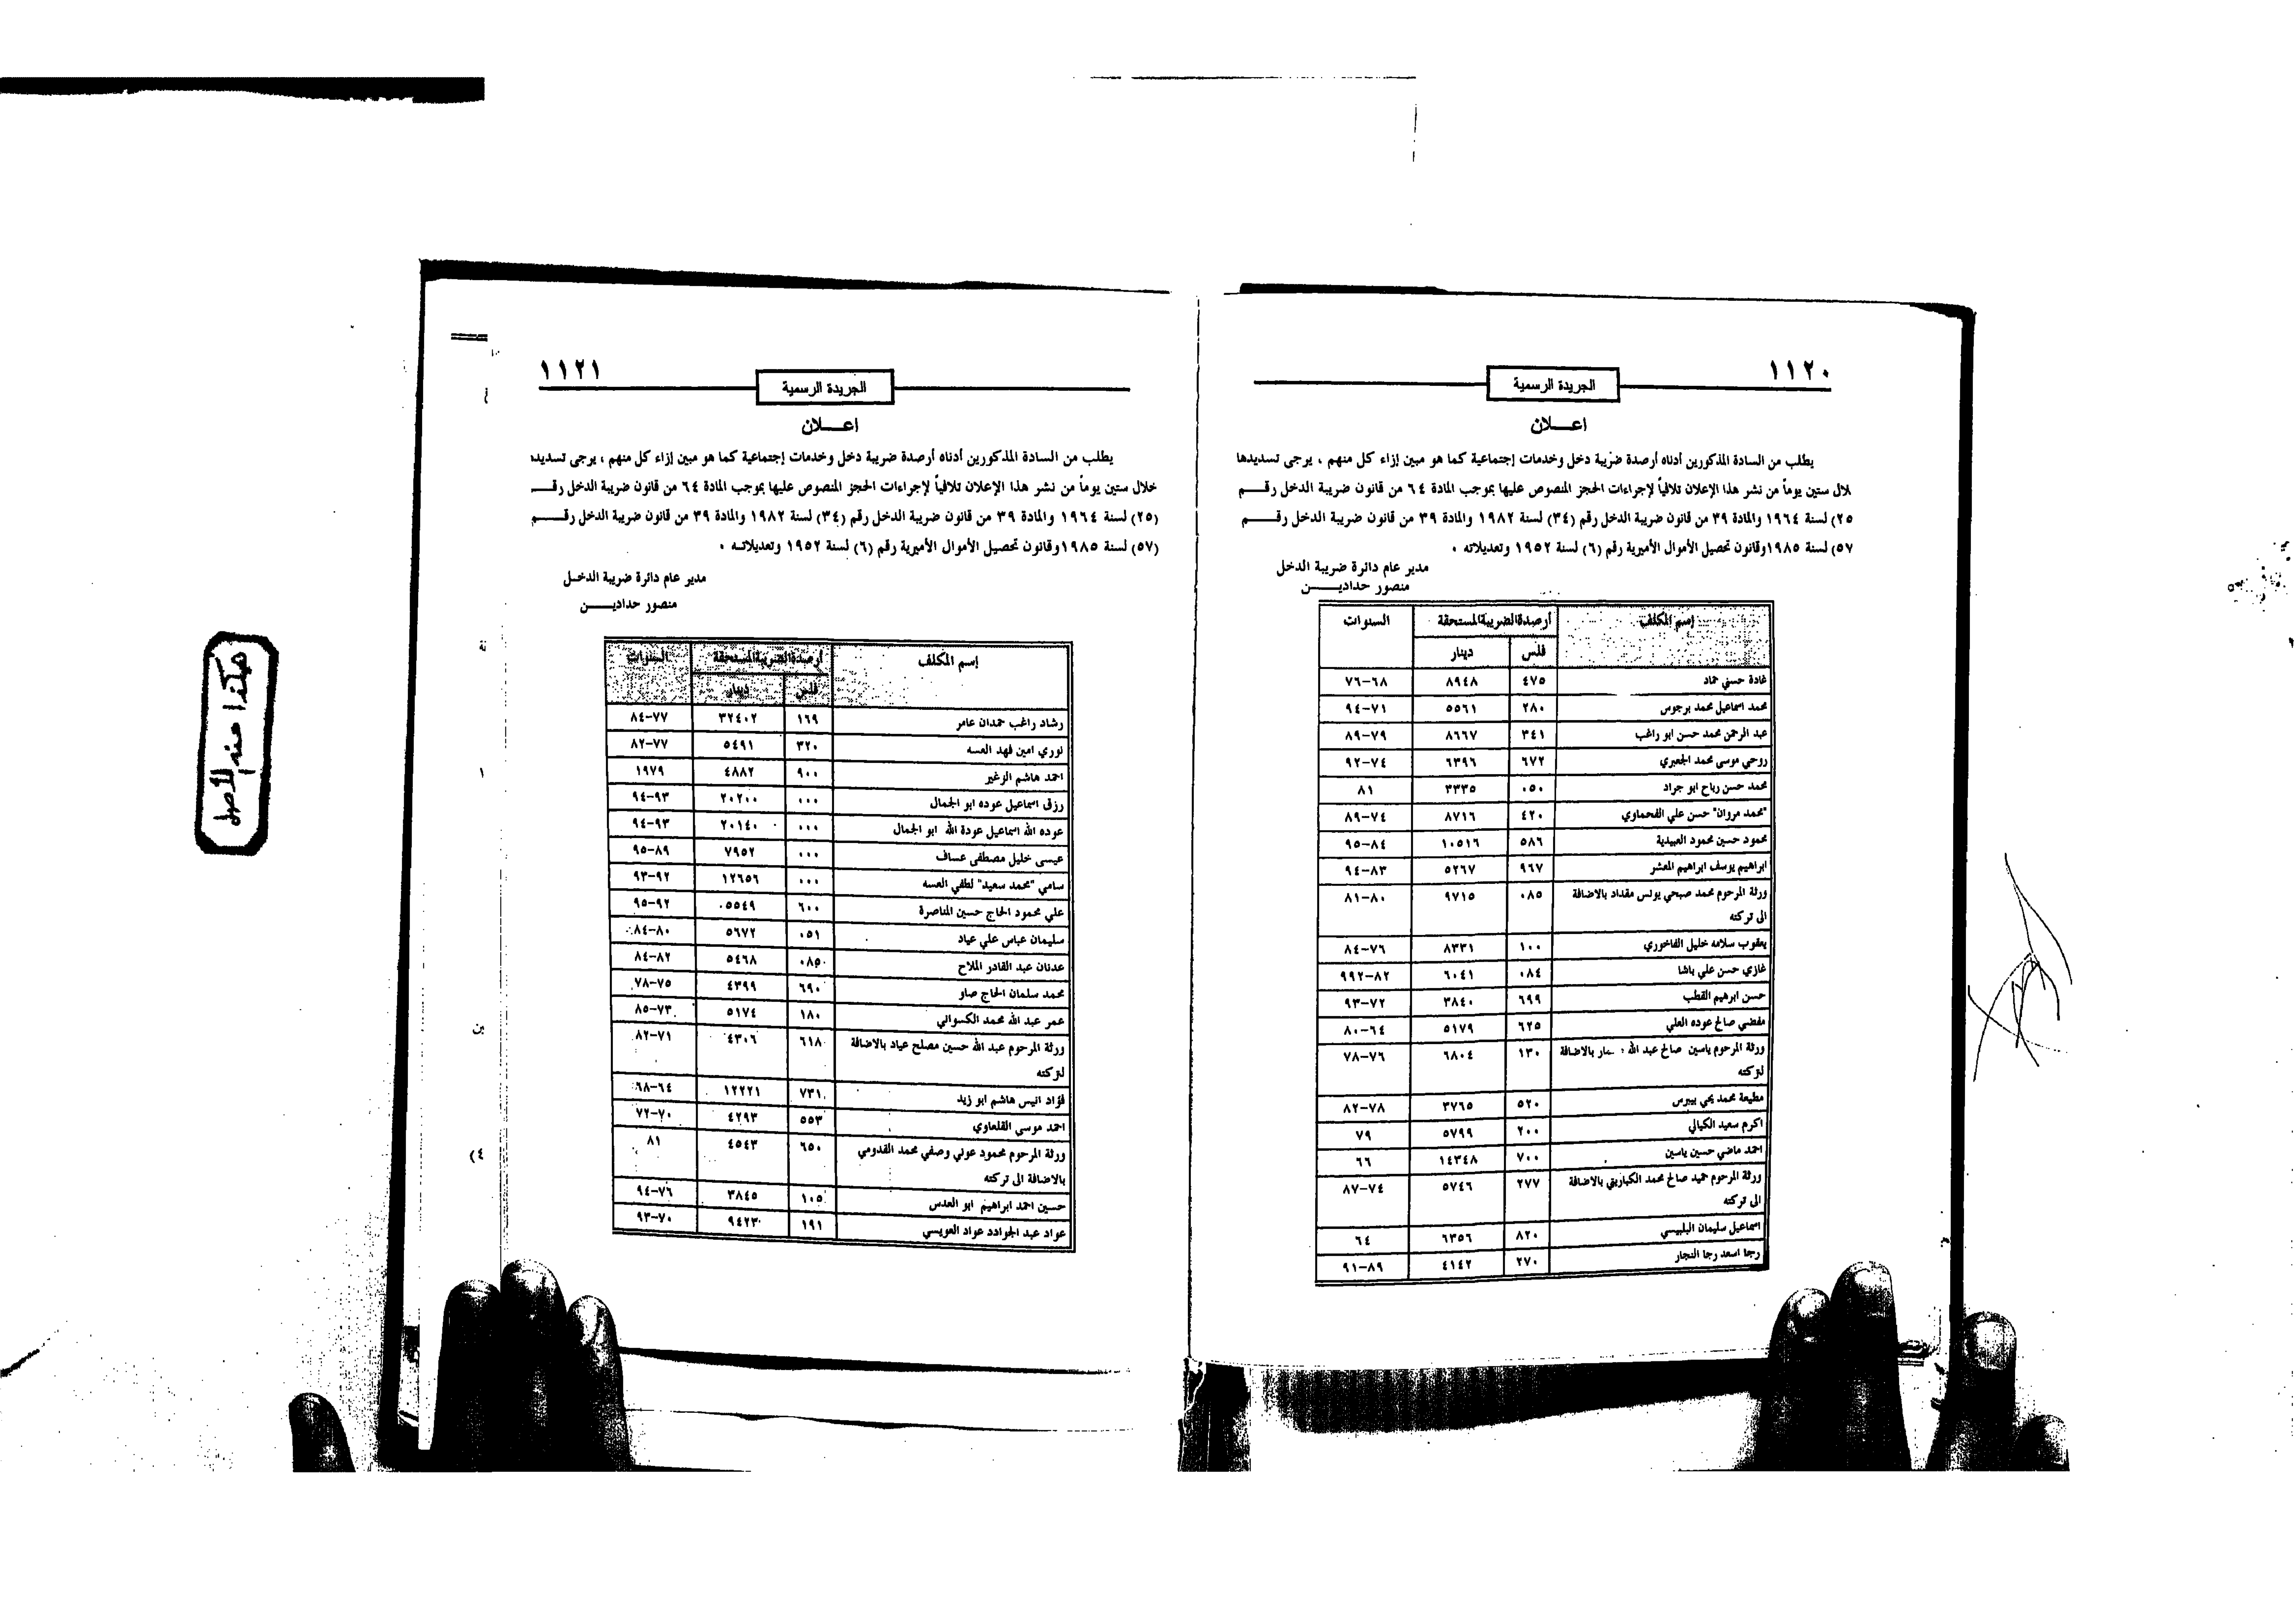 ١١٢٠
الجريدة الرسمية
اعـــلان
يطلب من السادة المذكورين أدناه أرصدة ضريبة دخل وخدمات إجتماعية كما هو مبين إزاء كل منهم ، يرجى تسديدها
لال ستين يوماً من نشر هذا الإعلان تلافياً لإجراءات الحجز المنصوص عليها بموجب المادة ٦٤ من قانون ضريبة الدخل رقـــم
٢٥) لسنة ١٩٦٤ والمادة ٣٩ من قانون ضريبة الدخل رقم (٣٤) لسنة ١٩٨٢ والمادة ٣٩ من قانون ضريبة الدخل رقـــم
٥٧) لسنة ١٩٨٥وقانون تحصيل الأموال الأميرية رقم (٦) لسنة ١٩٥٢ وتعديلاته .
مدير عام دائرة ضريبة الدخل
منصور حداديـــن
إسم المكلف أرصدةالضريبةالمستحقة السنوات
فلس دينار
غادة حسني حماد ٤٧٥ ٨٩٤٨ ٦٨-٧٦
محمد اسماعيل محمد برجوس ٢٨٠ ٥٥٦١ ٧١-٩٤
عبد الرحمن محمد حسن ابو راغب ٣٤١ ٨٦٦٧ ٧٩-٨٩
روحي موسى محمد الجعبري ٦٧٢ ٦٣٩٦ ٧٤-٩٢
محمد حسن رباح ابو جراد ٠٥٠ ٣٣٣٥ ٨١
"محمد مروان" حسن علي الفحماوي ٤٢٠ ٨٧١٦ ٧٤-٨٩
محمود حسين محمود العبيدية ٥٨٦ ١٠٥١٦ ٨٤-٩٥
ابراهيم يوسف ابراهيم المعشر ٩٦٧ ٥٢٦٧ ٨٣-٩٤
ورثة المرحوم محمد صبحي يونس مقداد بالاضافة ٠٨٥ ٩٧١٥ ٨٠-٨١
الى تركته
يعقوب سلامه خليل الفاخوري ١٠٠ ٨٣٣١ ٧٦-٨٤
غازي حسن علي باشا ٠٨٤ ٦٠٤١ ٨٢-٩٩٢
حسن ابرهيم القطب ٦٩٩ ٣٨٤٠ ٧٢-٩٣
مفضي صالح عوده العلي ٦٢٥ ٥١٧٩ ٦٤-٨٠
ورثة المرحوم ياسين صالح عبد الله بالاضافة ١٣٠ ٦٨٠٤ ٧٦-٧٨
لتركته
مطيعة محمد يحي بيبرس ٥٢٠ ٣٧٦٥ ٧٨-٨٢
اكرم سعيد الكيالي ٢٠٠ ٥٧٩٩ ٧٩
احمد ماضي حسين ياسين ٧٠٠ ١٤٣٤٨ ٦٦
ورثة المرحوم حميد صالح محمد الكباريتي بالاضافة ٢٧٧ ٥٧٤٦ ٧٤-٨٧
الى تركته
اسماعيل سليمان البلبيسي ٨٢٠ ٦٣٥٦ ٦٤
رجا اسعد رجا النجار ٢٧٠ ٤١٤٢ ٨٩-٩١
١١٢١
الجريدة الرسمية
اعـــلان
يطلب من السادة المذكورين أدناه أرصدة ضريبة دخل وخدمات إجتماعية كما هو مبين إزاء كل منهم ، يرجى تسديده
خلال ستين يوماً من نشر هذا الإعلان تلافياً لإجراءات الحجز المنصوص عليها بموجب المادة ٦٤ من قانون ضريبة الدخل رقـــ
(٢٥) لسنة ١٩٦٤ والمادة ٣٩ من قانون ضريبة الدخل رقم (٣٤) لسنة ١٩٨٢ والمادة ٣٩ من قانون ضريبة الدخل رقـــم
(٥٧) لسنة ١٩٨٥وقانون تحصيل الأموال الأميرية رقم (٦) لسنة ١٩٥٢ وتعديلاتـه .
مدير عام دائرة ضريبة الدخـل
منصور حداديـــن
إسم المكلف أرصدةالضريبةالمستحقة السنوات
فلس دينار
رشاد راغب حمدان عامر ١٦٩ ٣٢٤٠٢ ٧٧-٨٤
نوري امين فهد العسه ٣٢٠ ٥٤٩١ ٧٧-٨٢
احمد هاشم الزغير ٩٠٠ ٤٨٨٢ ١٩٧٩
رزق اسماعيل عوده ابو الجمال ٠٠٠ ٢٠٢٠٠ ٩٣-٩٤
عوده الله اسماعيل عودة الله ابو الجمال ٠٠٠ ٢٠١٤٠ ٩٣-٩٤
عيسى خليل مصطفى عساف ٠٠٠ ٧٩٥٢ ٨٩-٩٥
سامي "محمد سعيد" لطفي العسه ٠٠٠ ١٢٦٥٦ ٩٢-٩٣
علي محمود الحاج حسين المناصرة ٦٠٠ ٥٥٤٩ ٩٢-٩٥
سليمان عباس علي عياد ٠٥١ ٥٦٧٢ ٨٠-٨٤
عدنان عبد القادر الملاح ٠٨٥ ٥٤٦٨ ٨٢-٨٤
محمد سلمان الحاج صاو ٦٩٠ ٤٣٩٩ ٧٥-٧٨
عمر عبد الله محمد الكسواني ١٨٠ ٥١٧٤ ٧٣-٨٥
ورثة المرحوم عبد الله حسين مصلح عياد بالاضافة ٦١٨ ٤٣٠٦ ٧١-٨٢
لتركته
فؤاد انيس هاشم ابو زيد ٧٣١ ١٢٢٢١ ٦٤-٦٨
احمد موسى القلعاوي ٥٥٣ ٤٢٩٣ ٧٠-٧٢
ورثة المرحوم محمود عوني وصفي محمد القدومي ٦٥٠ ٤٥٤٣ ٨١
بالاضافة الى تركته
حسين احمد ابراهيم ابو العدس ١٠٥ ٣٨٤٥ ٧٦-٩٤
عواد عبد الجوادد عواد العويسي ١٩١ ٩٤٢٣ ٧٠-٩٣
هكذا عند الأصل